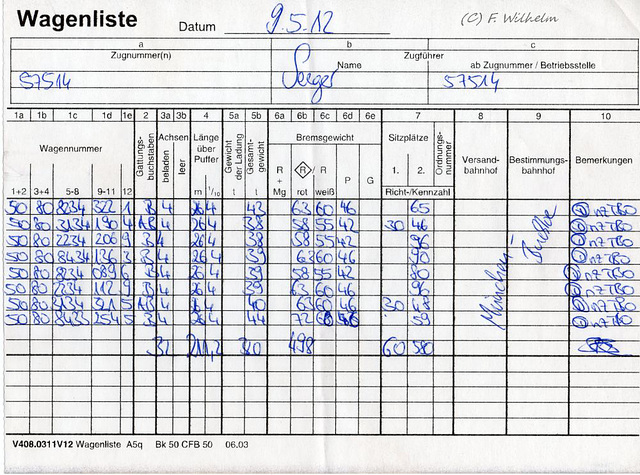 Wagenliste Datum 9.5.12 (C) F. Wilhelm
a b c
Zugnummer(n) Zugführer
Name ab Zugnummer / Betriebsstelle
57514 57514
1a 1b 1c 1d 1e 2 3a 3b 4 5a 5b 6a 6b 6c 6d 6e 7 8 9 10
Wagennummer Gattungsbuchstaben Achsen beladen leer Länge über Puffer Gewicht der Ladung Gesamtgewicht Bremsgewicht Sitzplätze Ordnungsnummer Versandbahnhof Bestimmungsbahnhof Bemerkungen
R + R / R P G 1. 2.
1+2 3+4 5-8 9-11 12 m 1/10 t t Mg rot weiß Richt-/Kennzahl
50 80 8234 322 1 B 4 26 4 42 63 60 46 65
50 80 3134 190 4 AB 4 26 4 38 58 55 42 30 46
50 80 2234 206 9 B 4 26 4 38 58 55 42 96
50 80 8434 136 3 B 4 26 4 39 63 60 46 90
50 80 8234 089 6 B 4 26 4 39 58 55 42 80
50 80 2234 112 9 B 4 26 4 39 63 60 46 96
50 80 3134 321 5 AB 4 26 4 40 63 60 46 30 48
50 80 8433 254 5 B 4 26 4 44 72 60 59
München
32 211,2 320 498 60 580
V408.0311V12 Wagenliste A5q Bk 50 CFB 50 06.03